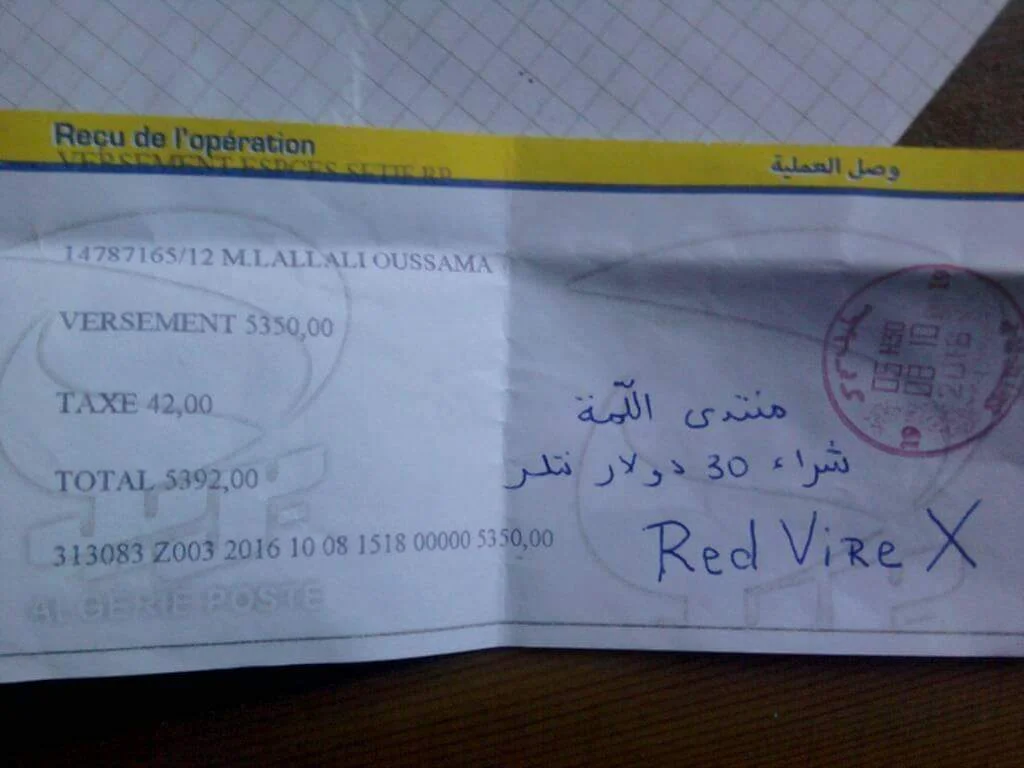 Reçu de l'opération
وصل العملية
VERSEMENT ESPCES SETIF RP
14787165/12 M.LALLALI OUSSAMA
VERSEMENT 5350,00
TAXE 42,00
TOTAL 5392,00
313083 Z003 2016 10 08 1518 00000 5350,00
ALGERIE POSTE
منتدى اللّمة
شراء 30 دولار نتلر
Red VIRe X
08 10
2016